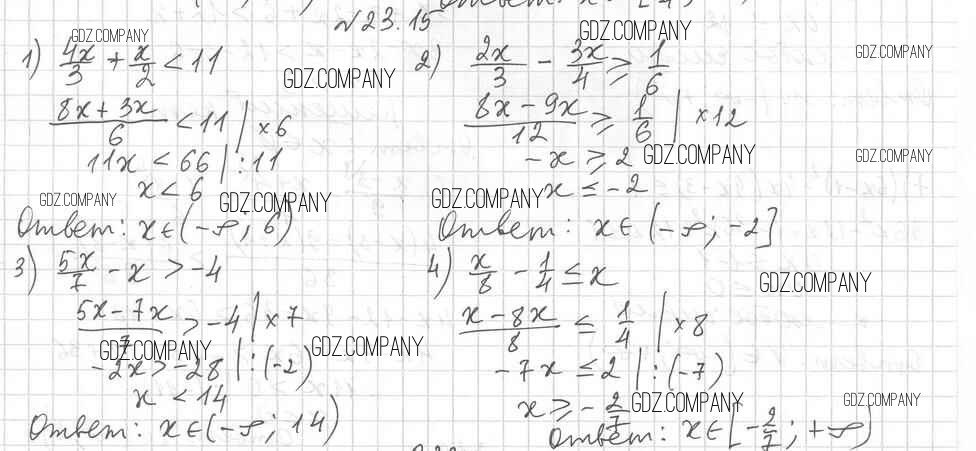 №23.15
1) 4x/3 + x/2 < 11
(8x + 3x)/6 < 11 | ×6
11x < 66 | : 11
x < 6
Ответ: x ∈ (-∞; 6)
2) 2x/3 - 3x/4 ≥ 1/6
(8x - 9x)/12 ≥ 1/6 | ×12
-x ≥ 2
x ≤ -2
Ответ: x ∈ (-∞; -2]
3) 5x/7 - x > -4
(5x - 7x)/7 > -4 | ×7
-2x > -28 | : (-2)
x < 14
Ответ: x ∈ (-∞; 14)
4) x/8 - 1/4 ≤ x
(x - 8x)/8 ≤ 1/4 | ×8
-7x ≤ 2 | : (-7)
x ≥ -2/7
Ответ: x ∈ [-2/7; +∞)
GDZ.COMPANY
GDZ.COMPANY
GDZ.COMPANY
GDZ.COMPANY
GDZ.COMPANY
GDZ.COMPANY
GDZ.COMPANY
GDZ.COMPANY
GDZ.COMPANY
GDZ.COMPANY
GDZ.COMPANY
GDZ.COMPANY
GDZ.COMPANY
GDZ.COMPANY